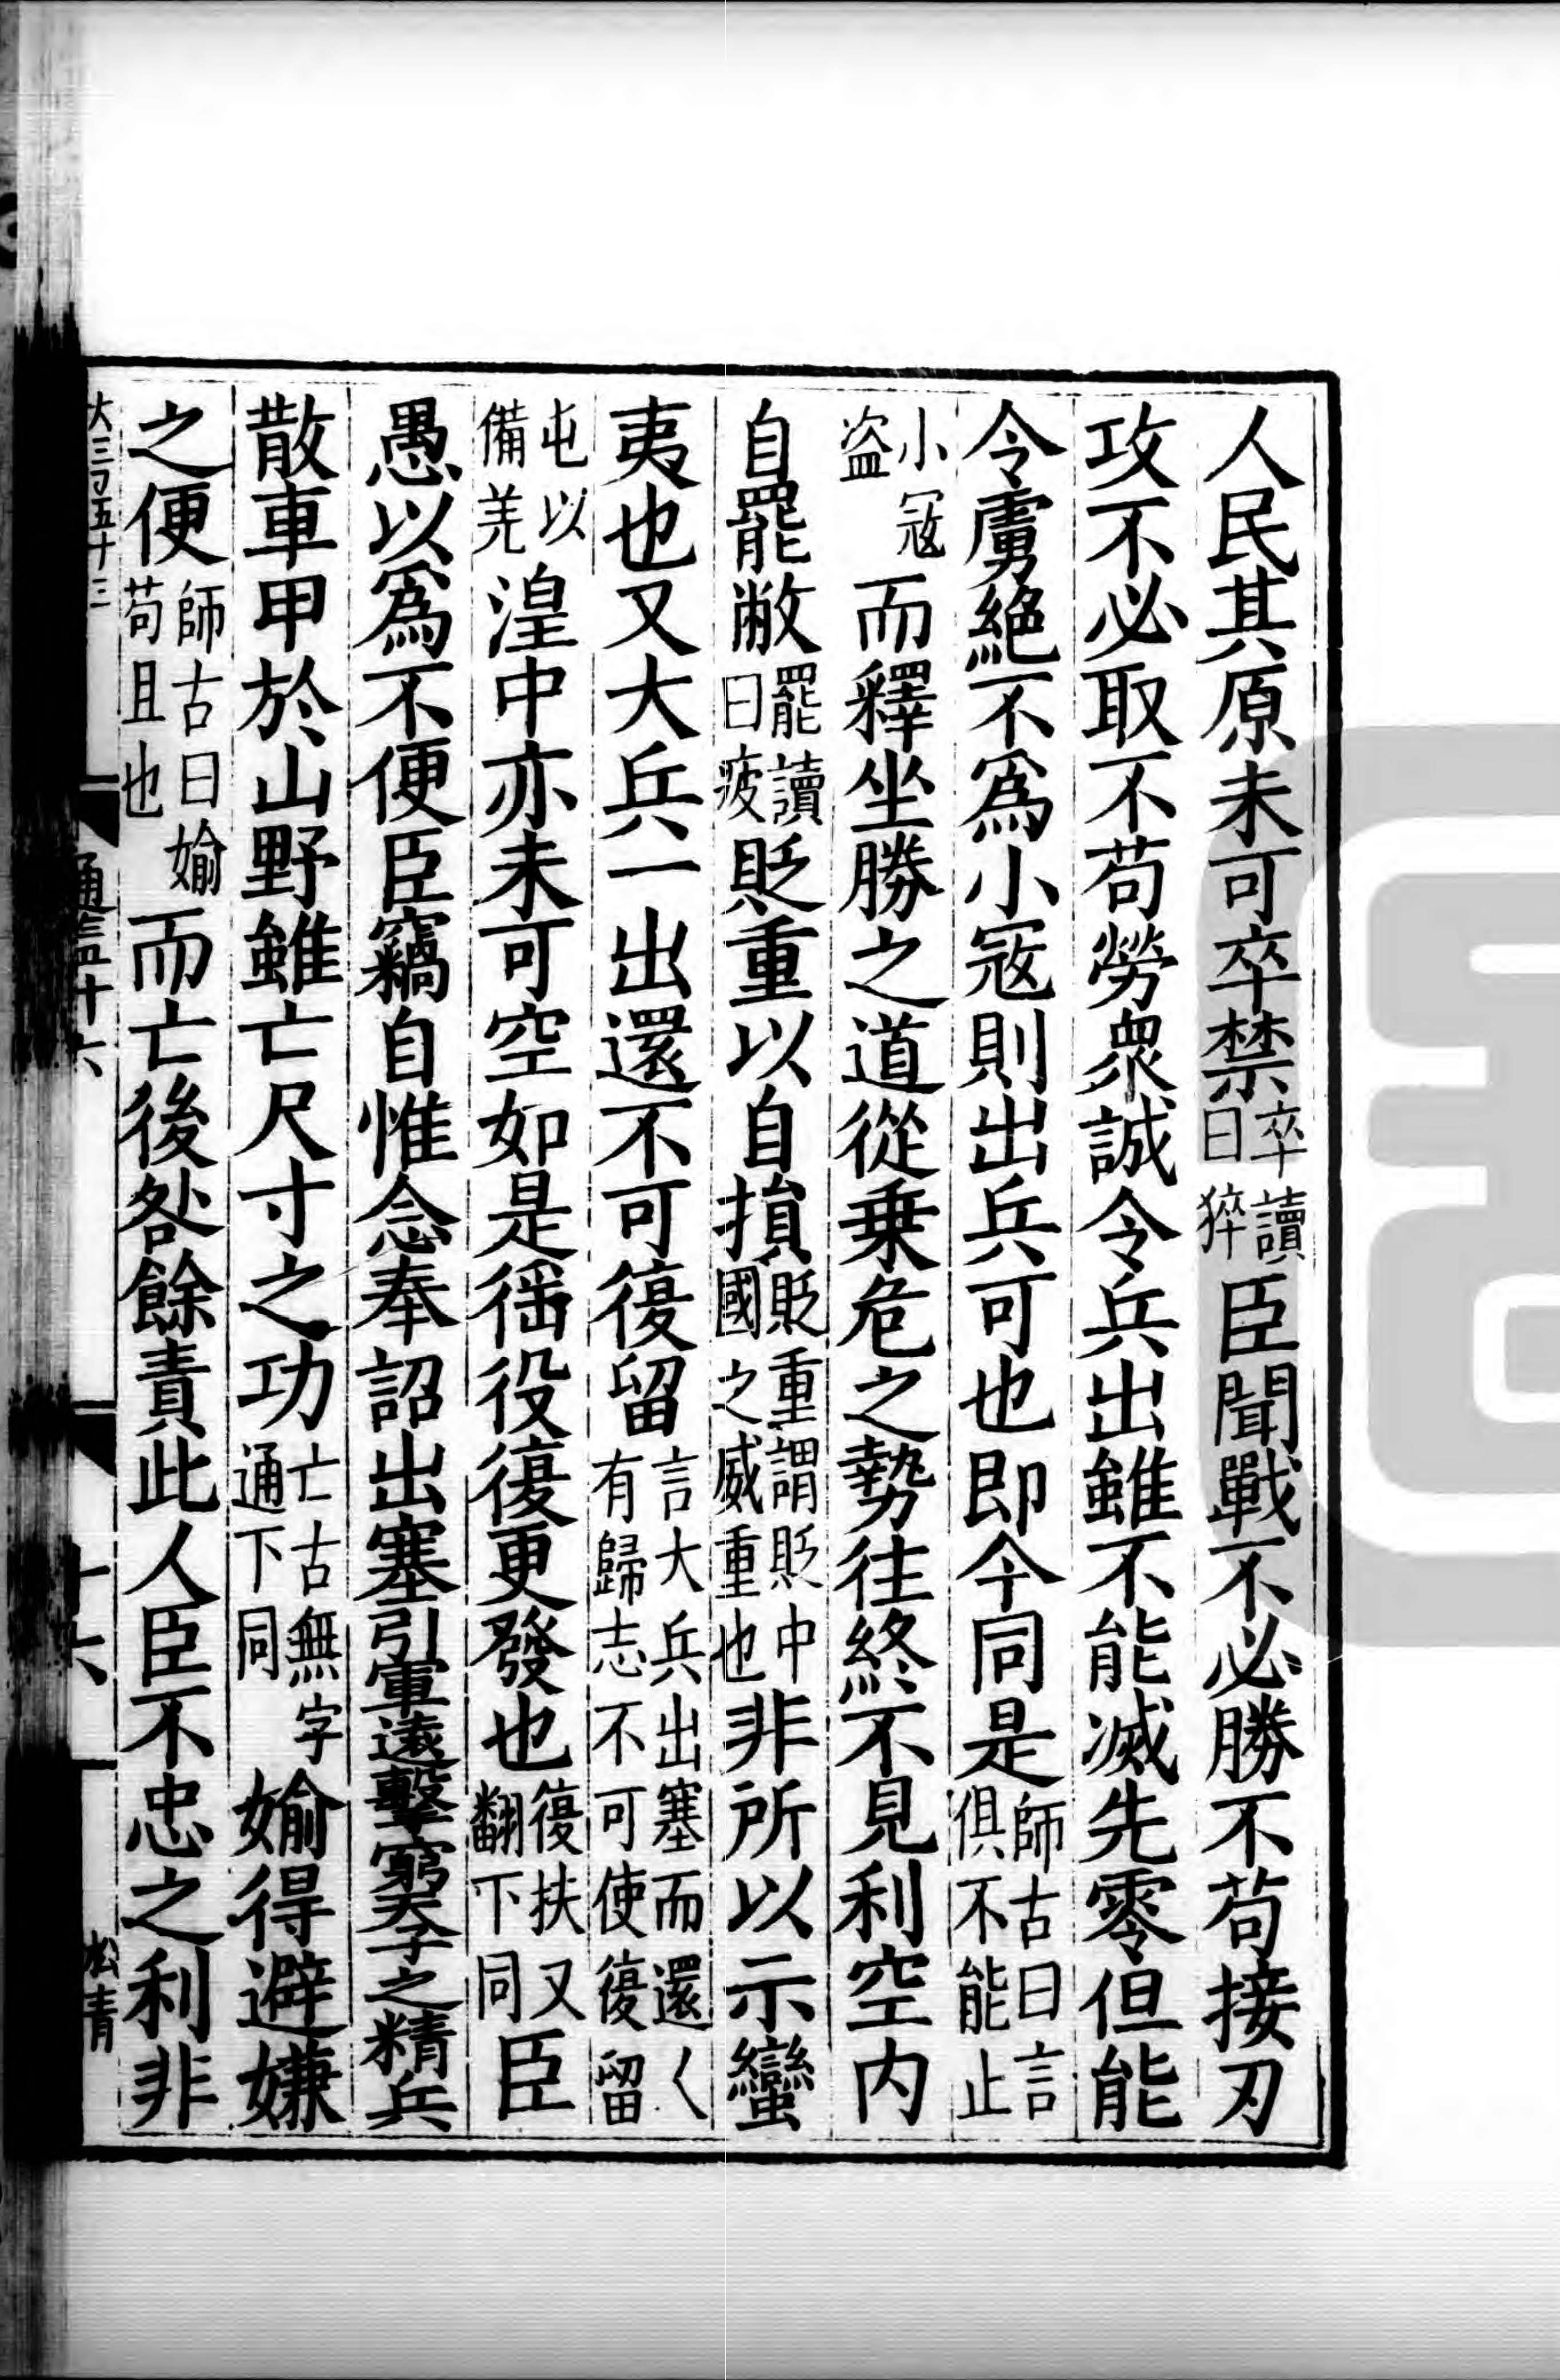 人民其原未可卒禁卒讀曰猝臣聞戰不必勝不苟接刃
攻不必取不苟勞衆誠令兵出雖不能滅先零但能
令虜絶不爲小寇則出兵可也即今同是師古曰言俱不能止
小寇盜而釋坐勝之道從乗危之勢往終不見利空内
自罷敝罷讀曰疲貶重以自損貶重謂貶中國之威重也非所以示蠻
夷也又大兵一出還不可復留言大兵出塞而還人有歸志不可使復留
屯以備羌湟中亦未可空如是徭役復更發也復扶又翻下同臣
愚以爲不便臣竊自惟念奉詔出塞引軍遠擊窮天子之精兵
散車甲於山野雖亡尺寸之功亡古無字通下同媮得避嫌
之便師古曰媮苟且也而亡後咎餘責此人臣不忠之利非
大三百五十三
通鑑十六
十六